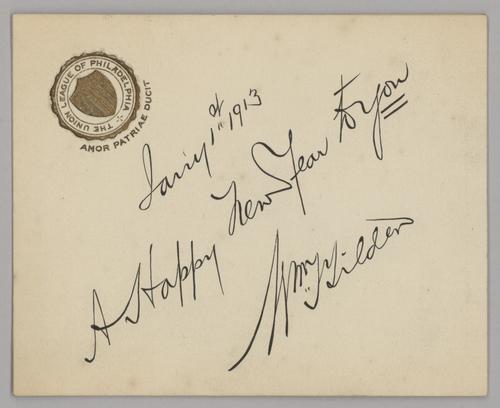 THE UNION LEAGUE OF PHILADELPHIA
AMOR PATRIAE DUCIT
Jan'y 1st 1913
A Happy New Year to you
Wm Tilden